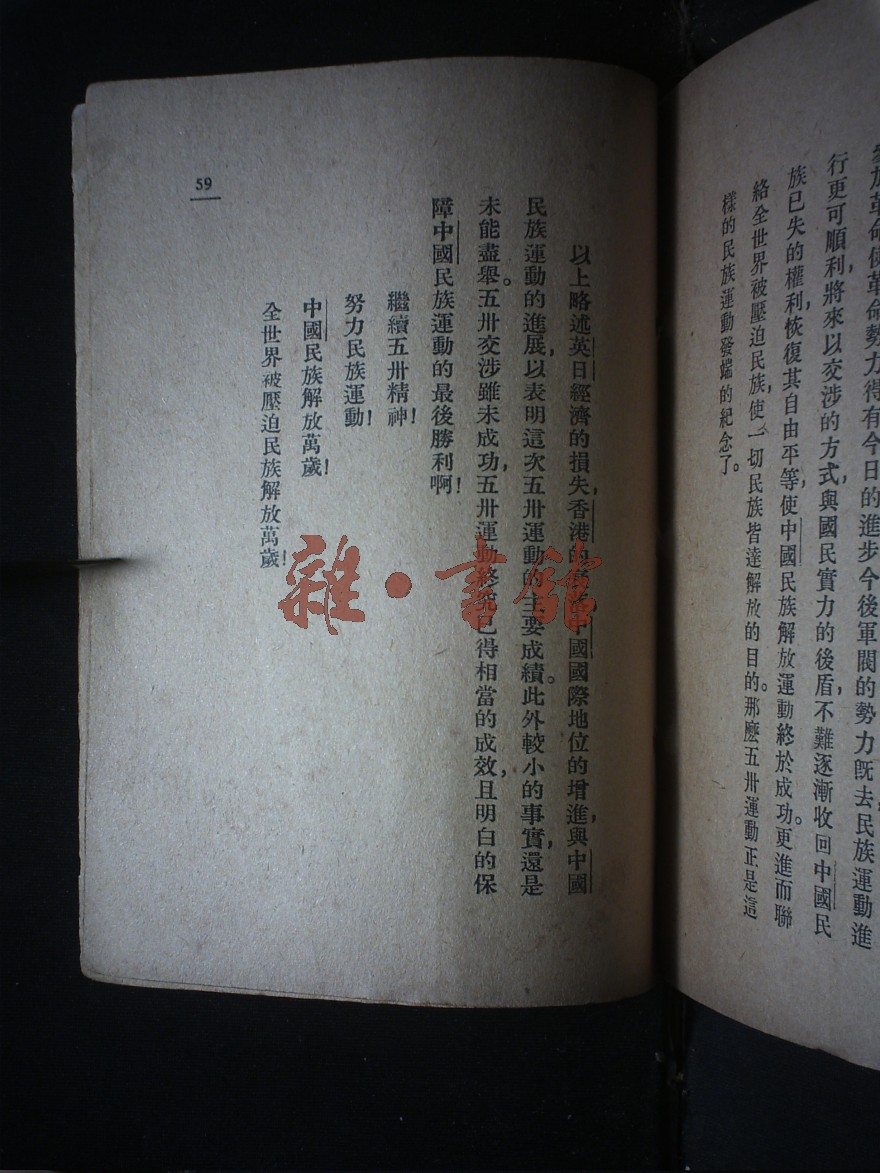 行更可順利，將來以交涉的方式，與國民實力的後盾，不難逐漸收回中國民
族已失的權利，恢復其自由平等，使中國民族解放運動終於成功。更進而聯
絡全世界被壓迫民族，使一切民族皆達解放的目的。那麼五卅運動正是這
樣的民族運動發燦的紀念了。
以上略述英日經濟的損失，香港的中國國際地位的增進，與中國
民族運動的進展，以表明這次五卅運動的主要成績。此外較小的事實，還是
未能盡舉。五卅交涉雖未成功，五卅運動終已得相當的成效，且明白的保
障中國民族運動的最後勝利啊！
繼續五卅精神！
努力民族運動！
中國民族解放萬歲！
全世界被壓迫民族解放萬歲！
59
雜·書館